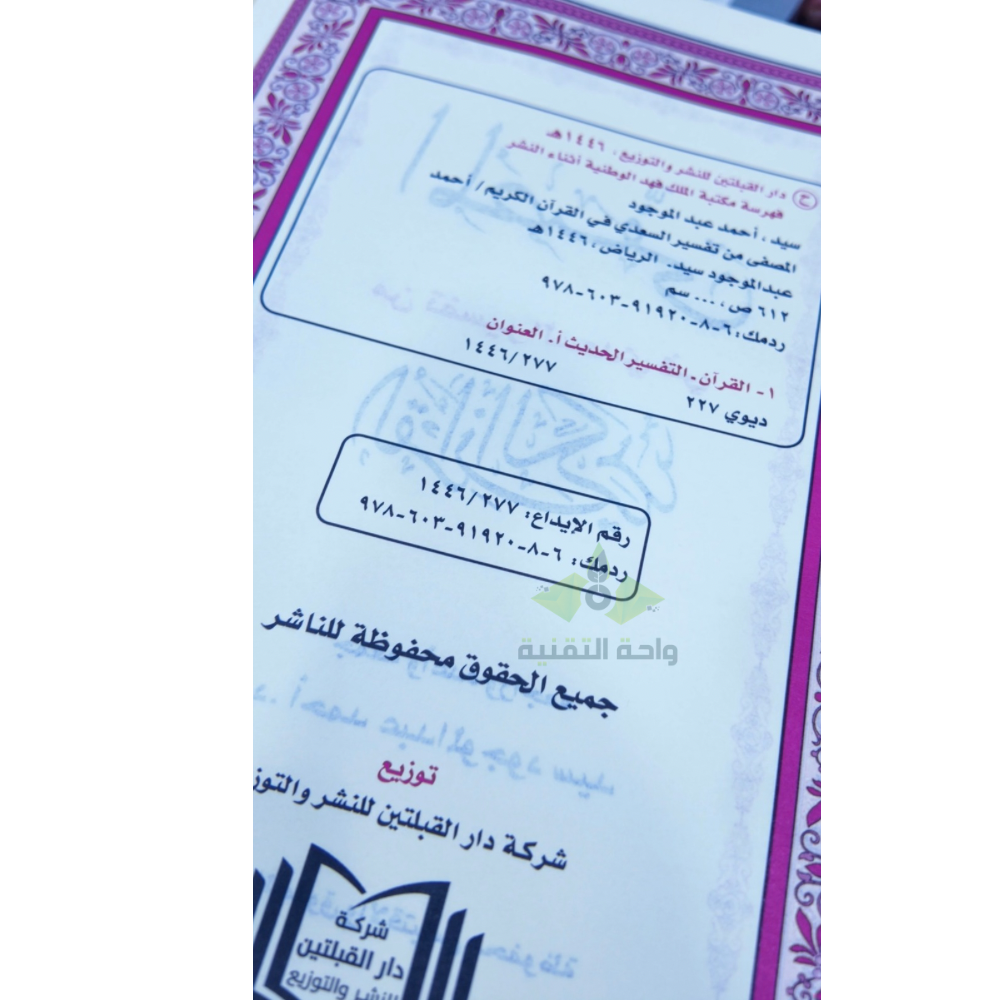 ح دار القبلتين للنشر والتوزيع، ١٤٤٦هـ
فهرسة مكتبة الملك فهد الوطنية أثناء النشر
سيد، أحمد عبد الموجود
المصفى من تفسير السعدي في القرآن الكريم/ أحمد
عبدالموجود سيد. الرياض، ١٤٤٦هـ
٦١٢ ص، ... سم
ردمك: ٦-٨-٩١٩٢٠-٦٠٣-٩٧٨
١- القرآن. التفسير الحديث أ. العنوان
ديوي ٢٢٧ ١٤٤٦/٢٧٧
رقم الإيداع: ١٤٤٦/٢٧٧
ردمك: ٦-٨-٩١٩٢٠-٦٠٣-٩٧٨
واحة التقنية
جميع الحقوق محفوظة للناشر
توزيع
شركة دار القبلتين للنشر والتوز
شركة
دار القبلتين
للنشر والتوزيع